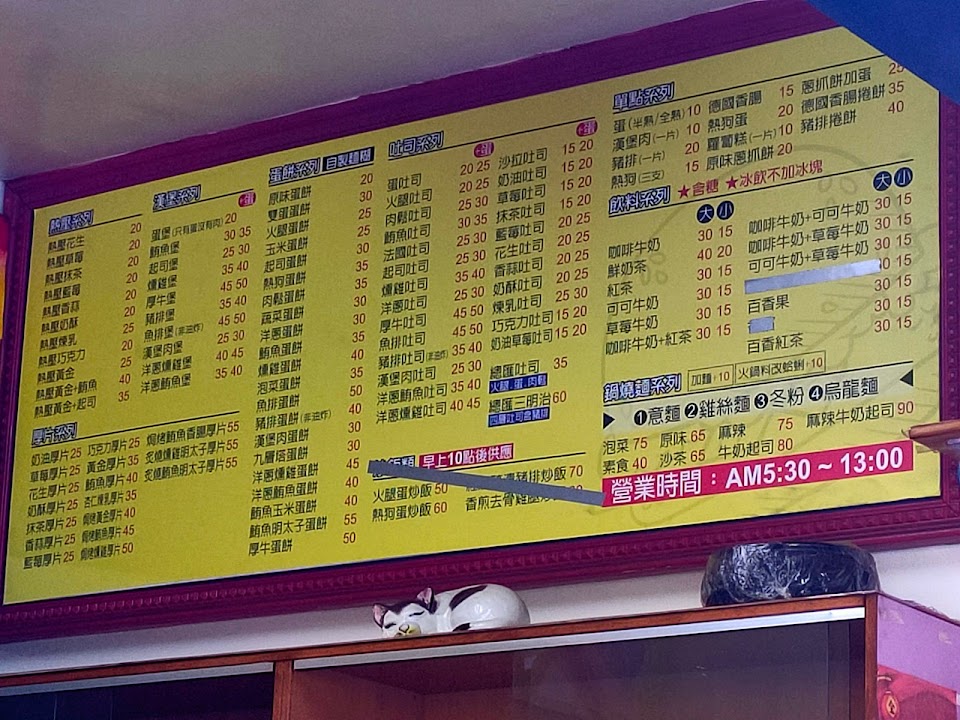 熱壓系列
熱壓花生 20
熱壓草莓 20
熱壓抹茶 20
熱壓藍莓 20
熱壓香蒜 20
熱壓奶酥 20
熱壓煉乳 25
熱壓巧克力 20
熱壓黃金 25
熱壓黃金+鮪魚 40
熱壓黃金+起司 35
厚片系列
奶油厚片25 巧克力厚片25 焗烤鮪魚香腸厚片55
草莓厚片25 黃金厚片35 炙燒燻雞明太子厚片55
花生厚片25 鮪魚厚片40 炙燒鮪魚明太子厚片55
奶酥厚片25 杏仁煉乳厚片35
抹茶厚片25 焗烤黃金厚片40
香蒜厚片25 焗烤鮪魚厚片45
藍莓厚片25 焗烤燻雞厚片50
漢堡系列 +蛋
蛋堡(只有蛋沒有肉) 20
鮪魚堡 30 35
起司堡 25
燻雞堡 35 40
厚牛堡 45 50
豬排堡 35 40
魚排堡(非油炸) 25 30
漢堡肉堡 25
洋蔥燻雞堡 40 45
洋蔥鮪魚堡 35
蛋餅系列 自製麵糊
原味蛋餅 20
雙蛋蛋餅
火腿蛋餅
玉米蛋餅
起司蛋餅
熱狗蛋餅
肉鬆蛋餅
蔬菜蛋餅
洋蔥蛋餅
鮪魚蛋餅
燻雞蛋餅
泡菜蛋餅
魚排蛋餅
豬排蛋餅(非油炸)
漢堡肉蛋餅
九層塔蛋餅
洋蔥燻雞蛋餅
洋蔥鮪魚蛋餅
鮪魚玉米蛋餅
鮪魚明太子蛋餅
厚牛蛋餅 50
吐司系列 +蛋
蛋吐司 20 25
火腿吐司 20 25
肉鬆吐司 20 25
鮪魚吐司 30 35
法國吐司 25
起司吐司 20 25
燻雞吐司 35 40
洋蔥吐司 25 30
厚牛吐司 45 50
魚排吐司 25 30
豬排吐司(非油炸) 35 40
漢堡肉吐司 25 30
洋蔥鮪魚吐司 35
洋蔥燻雞吐司 40 45
+蛋
沙拉吐司 15 20
奶油吐司 15 20
草莓吐司 15 20
抹茶吐司 15 20
藍莓吐司 15 20
花生吐司 20 25
香蒜吐司 20 25
奶酥吐司 20 25
煉乳吐司 25 30
巧克力吐司 15 20
奶油草莓吐司 15 20
總匯吐司 35
火腿.蛋.肉鬆
總匯三明治 60
四層吐司含豬排
早上10點後供應
火腿蛋炒飯 50
豬排炒飯 70
熱狗蛋炒飯 60
香煎去骨雞腿
單點系列
蛋(半熟/全熟) 10 德國香腸 15 蔥抓餅加蛋 25
漢堡肉(一片) 10 熱狗蛋 20 德國香腸捲餅 35
豬排(一片) 20 蘿蔔糕(一片) 10 豬排捲餅 40
熱狗(三支) 15 原味蔥抓餅 20
飲料系列 ★含糖 ★冰飲不加冰塊
大 小 大 小
咖啡牛奶 30 15 咖啡牛奶+可可牛奶 30 15
鮮奶茶 40 20 咖啡牛奶+草莓牛奶 30 15
紅茶 30 15 可可牛奶+草莓牛奶 30 15
可可牛奶 30 15 30 15
草莓牛奶 30 15 百香果 30 15
咖啡牛奶+紅茶 30 15
百香紅茶 30 15
鍋燒麵系列 加麵+10 火鍋料改蛤蜊+10
❶意麵 ❷雞絲麵 ❸冬粉 ❹烏龍麵
泡菜 75 原味 65 麻辣 75 麻辣牛奶起司 90
素食 40 沙茶 65 牛奶起司 80
營業時間：AM5:30 ~ 13:00